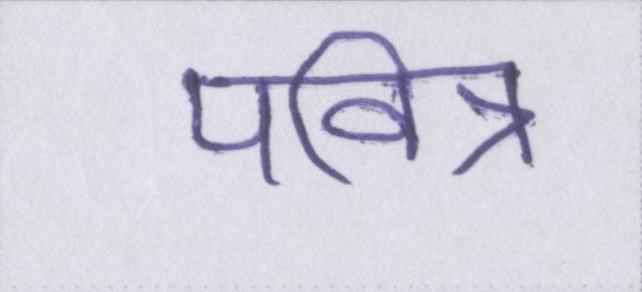 पवित्र